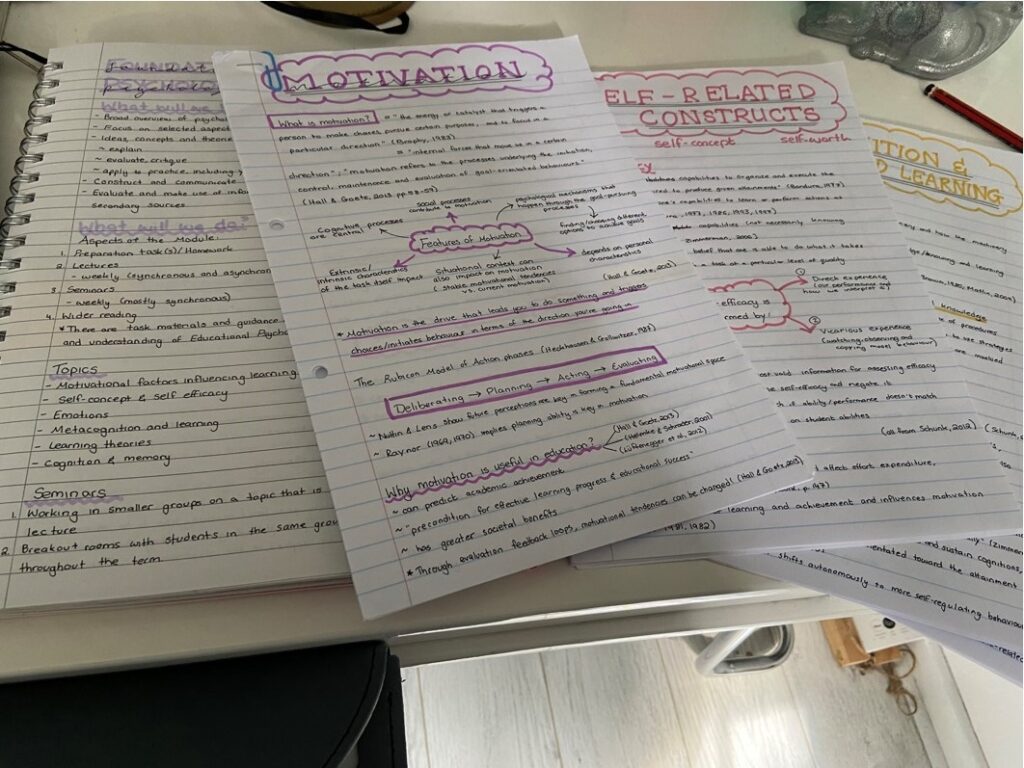 FOUNDAT
PSYCHOLO
What will we
- Broad overview of psycho
- Focus on selected aspect
- Ideas, concepts and theorie
~ explain
~ evaluate, critique
~ apply to practice, including
- Construct and communicate
- Evaluate and make use of info
secondary sources
What will we do?
Aspects of the Module:
1. Preparation task(s)/Homework
2. Lectures
- weekly (asynchronous and asynchron
3. Seminars
- weekly (mostly synchronous)
4. Wider reading
* There are task materials and guidance
and understanding of Educational Psycho
Topics
- Motivational factors influencing learning
- Self-concept & self efficacy
- Emotions
- Metacognition and learning
- Learning theories
- Cognition & memory
Seminars
1. Working in smaller groups on a topic that is
lecture
2. Breakout rooms with students in the same grou
throughout the term.
MOTIVATION
What is motivation? = "the energy or catalyst that triggers a
person to make choices, pursue certain purposes, and to focus in a
particular direction" (Brophy, 1983)
= "internal forces that move us in a certain
direction"; "motivation refers to the processes underlying the initiation,
control, maintenance and evaluation of goal-orientated behaviours"
(Hall & Goetz, 2013 pp.58-59)
social processes
contribute to motivation
psychological mechanisms that
happen through the goal-pursuing
processes
Cognitive processes
are central
Features of Motivation
finding/choosing different
options to achieve goals
Extrinsic/
intrinsic characteristics
of the task itself impact
Situational context can
also impact on motivation
(stable motivational tendencies
vs. current motivation)
depends on personal
characteristics
(Hall & Goetz, 2013)
* Motivation is the drive that leads you to do something and triggers
choices/initiates behaviour in terms of the direction you're going in
The Rubicon Model of Action phases (Heckhausen & Gollwitzer, 1987)
Deliberating → Planning → Acting → Evaluating
~ Nuttin & Lens show future perceptions are key in forming a fundamental motivational space
~ Raynor (1969, 1970) implies planning ability is key in motivation
Why motivation is useful in education?
(Hall & Goetz, 2013)
(Helmke & Schrader, 2001)
(Lüftenegger et al., 2012)
~ can predict academic achievement
~ "precondition for effective learning progress & educational success"
~ has greater societal benefits
* Through evaluation feedback loops, motivational tendences can be changed! (Hall & Goetz, 2013)
ELF-RELATED
CONSTRUCTS
self-concept self-worth
capabilities to organize and execute the
red to produce given attainments" (Bandura, 1977)
capabilities to learn or perform actions at
1977, 1986, 1993, 1997)
capabilities (not necessarily knowing
Zimmerman, 2000)
belief that are able to do what it takes
a task at a particular level of quality
efficacy is
rmed by:
1 Direct experience
(our performance and
how we interpret it)
2 Vicarious experience
(watching, observing and
copying model behaviour)
valid information for assessing efficacy
self-efficacy and negate it
if ability/performance doesn't match
on student abilities
(all from Schunk, 2012)
affect effort expenditure,
p.97)
learning and achievement and influences motivation
1981, 1982)
ITION &
D LEARNING
and how the machinery
and learning
knowledge
of procedures
use strategies
are involved
(Schunk,
(Zimmer
and sustain cognitions,
entated toward the attainment
shifts autonomously to more self-regulating behaviour
-related